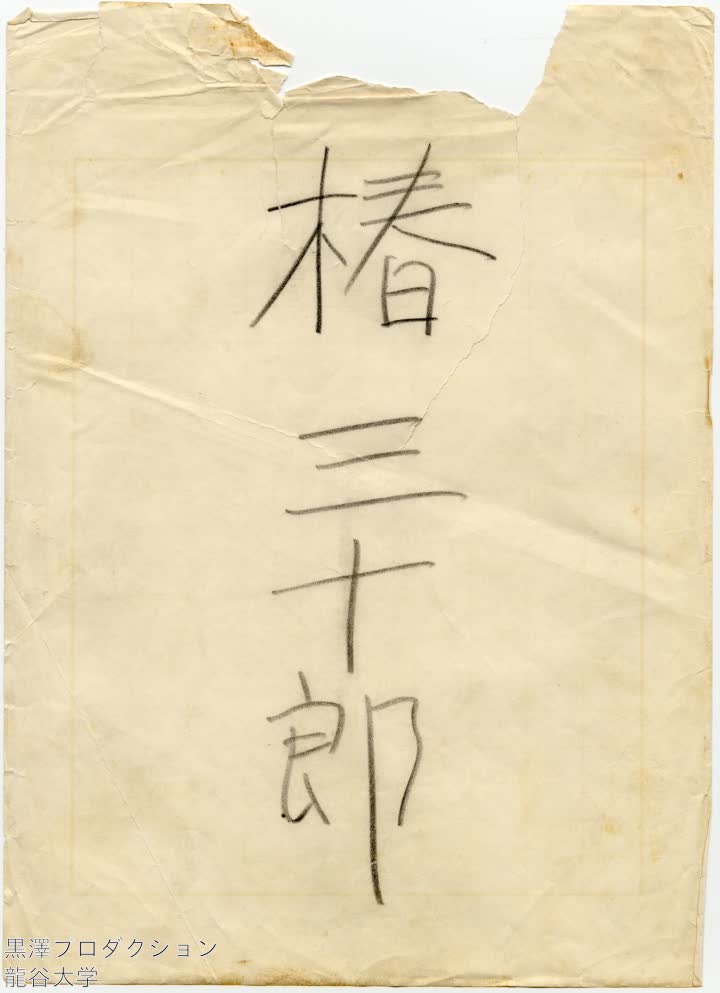 椿三十郎
黒澤プロダクション
龍谷大学